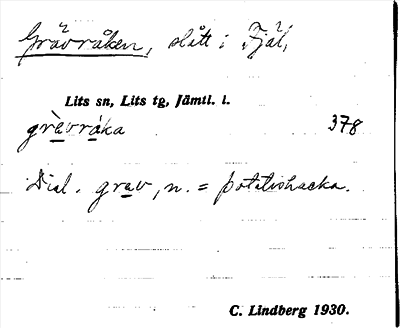 Grävråken, slått i Fjäl,
Lits sn, Lits tg, Jämtl. l.
gràvráka 378
Dial. grav, n. = potatishacka.
C. Lindberg 1930.